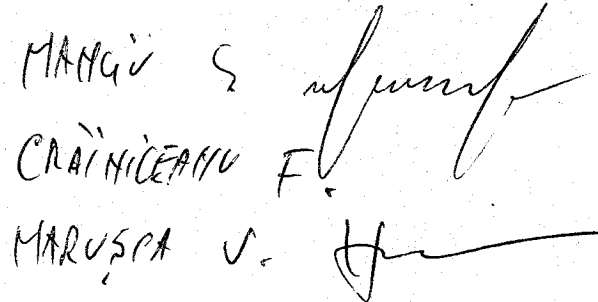 MANGÎU G
CRĂINICEANU F.
MARUȘCA V.